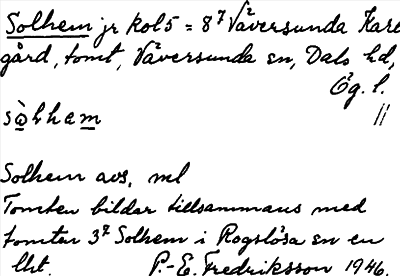 Solhem jr kol5 = 8⁷ Väversunda Karl
gård, tomt, Väversunda sn, Dals hd,
Ög. l.
Solhem avs, ml
Tomten bildar tillsammans med
tomten 3² Solhem i Rogslösa sn en
lht. P.-E. Fredriksson 1946.